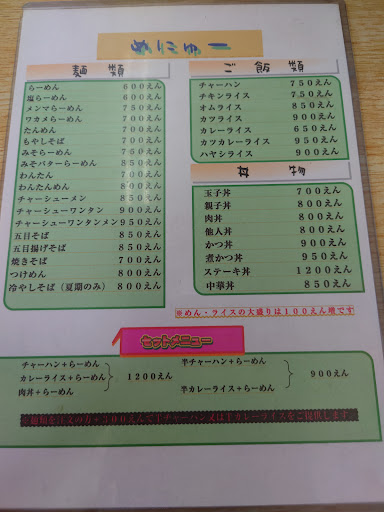 めにゅー
麺類
らーめん 600えん
塩らーめん 600えん
メンマらーめん 750えん
ワカメらーめん 700えん
たんめん 700えん
もやしそば 700えん
みそらーめん 750えん
みそバターらーめん 850えん
わんたん 700えん
わんたんめん 800えん
チャーシューメン 850えん
チャーシューワンタン 900えん
チャーシューワンタンメン 950えん
五目そば 850えん
五目揚げそば 850えん
焼きそば 700えん
つけめん 800えん
冷やしそば(夏期のみ) 800えん
ご飯類
チャーハン 750えん
チキンライス 750えん
オムライス 850えん
カツライス 900えん
カレーライス 650えん
カツカレーライス 950えん
ハヤシライス 750えん
丼物
玉子丼 700えん
親子丼 800えん
肉丼 800えん
他人丼 800えん
かつ丼 900えん
煮かつ丼 950えん
ステーキ丼 1200えん
中華丼 850えん
※めん・ライスの大盛りは100えん増です
セットメニュー
チャーハン+らーめん
カレーライス+らーめん 1200えん
肉丼+らーめん
半チャーハン+らーめん
900えん
半カレーライス+らーめん